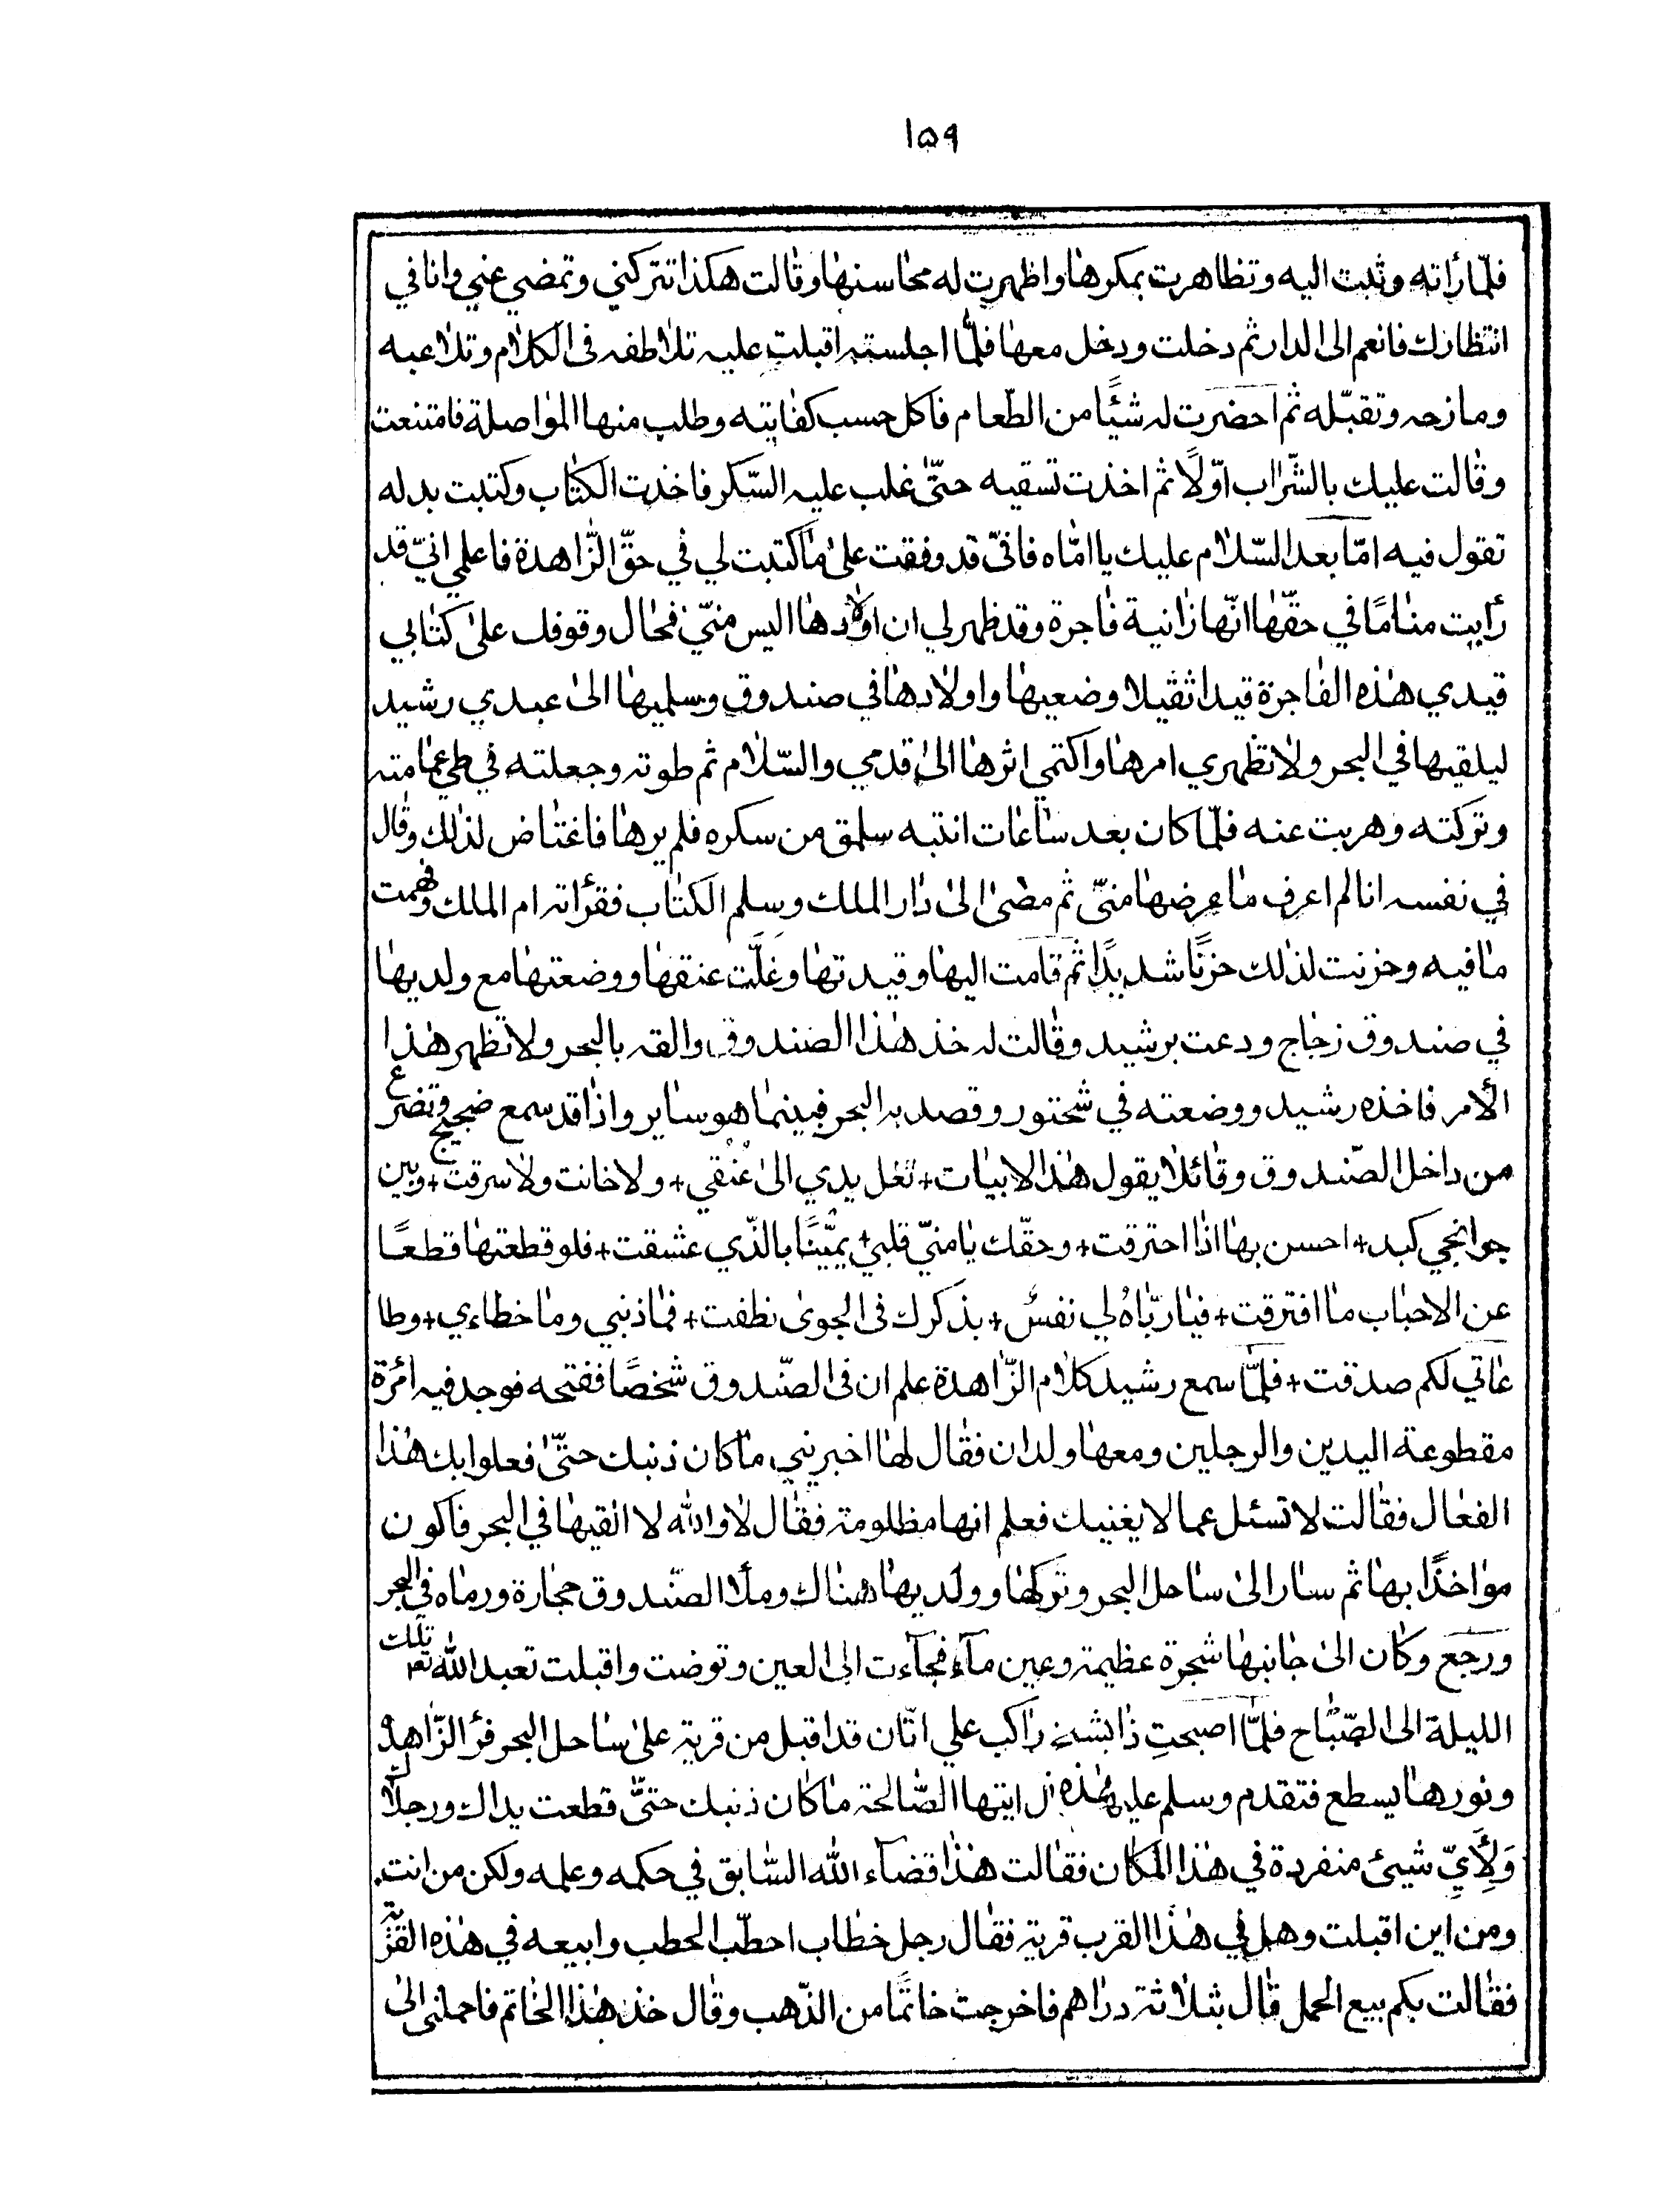 ١٥٩
فلمّا رأته وثبت اليه وتظاهرت بمكرها واظهرت له محاسنها وقالت هكذا تتركني وتمضي عني وانا في
انتظارك فانعم الى الدار ثم دخلت ودخل معها فلمّا اجلسته اقبلت عليه تلاطفه في الكلام وتلاعبه
ومازحه وتقبّله ثم احضرت له شيئًا من الطّعام فاكل حسب كفايته وطلب منها المواصلة فامتنعت
وقالت عليك بالشّراب اوّلًا ثم اخذت تسقيه حتّى غلب عليه السّكر فاخذت الكتاب وكتبت بدله
تقول فيه امّا بعد السّلام عليك يا امّاه فانّى قد وفقت على ما كتبت لي في حقّ الزّاهدة فاعلمي انيّ قد
رأيت منامًا في حقّها انّها زانية فاجرة وقد ظهر لي ان اولادها اليس منيّ فحال وقوفك على كتابي
قيدي هذه الفاجرة قيدا ثقيلا وضعيها واولادها في صندوق وسلميها الى عبدي رشيد
ليلقيها في البحر ولا تظهري امرها واكتمى اثرها الى قدمي والسّلام ثم طوته وجعلته في طي عمامته
وتركته وهربت عنه فلمّا كان بعد ساعات انتبه سلمق من سكره فلم يرها فاغتاض لذلك وقال
في نفسه انا لم اعرف ما عرضها منيّ ثم مضى الى دار الملك وسلم الكتاب فقرأته ام الملك وفهمت
ما فيه وحزنت لذلك حزنًا شديدًا ثم قامت اليها وقيدتها وغلّت عنقها ووضعتها مع ولديها
في صندوق زجاج ودعت برشيد وقالت له خذ هذا الصندوق والقه بالبحر ولا تظهر هذا
الأمر فاخذه رشيد ووضعته في شختور وقصد به البحر فبينما هو ساير واذا قد سمع ضجيج وتضرع
من داخل الصّندوق وقائلا يقول هذا الابيات + تغل يدي الى عُنُقي + ولا خانت ولا سرقت + وبين
جوانحي كبد + احسن بها اذا احترقت + وحقّك يا منيّ قلبي + يمينًا بالّذي عشقت + فلو قطعتها قطعًا
عن الاحباب ما افترقت + فيا ربّاهُ لي نفسٌ + بذكرك في الجوى نظفت + فما ذنبي وما خطاءي + وطا
عاتي لكم صدقت + فلمّا سمع رشيد كلام الزّاهدة علم ان في الصّندوق شخصًا ففتحه فوجد فيه امرَة
مقطوعة اليدين والرجلين ومعها ولدان فقال لها اخبريني ما كان ذنبك حتّى فعلوا بك هذا
الفعال فقالت لا تسئل عما لا يغنيك فعلم انها مظلومة فقال لا والله لا القيها في البحر فاكون
مواخذًا بها ثم سار الى ساحل البحر وتركها وولديها هناك وملأ الصّندوق حجارة ورماه في البحر
ورجع وكان الى جانبها شجرة عظيمة وعين مآء فجآءت الى العين وتوضت واقبلت تعبد الله تع تلك
الليلة الى الصّباح فلمّا اصبحتِ ذا بشخ راكب علي اتان قد اقبل من قرية على ساحل البحر فرأ الزّاهدة
ونورها يسطع فتقدم وسلم عليها ايتها الصّالحة ما كان ذنبك حتّى قطعت يداك ورجلاك
وَلِأَيِّ شيئ منفردة في هذا المكان فقالت هذا قضآء الله السّابق في حكمه وعلمه ولكن من انت
ومن اين اقبلت وهل في هذا القرب قرية فقال رجل خطاب احطّب الحطب وابيعه في هذه القرية
فقالت بكم بيع الحمل قال بثلاثة دراهم فاخرجت خاتمًا من الذّهب وقال خذ هذا الخاتم فاحملني الى